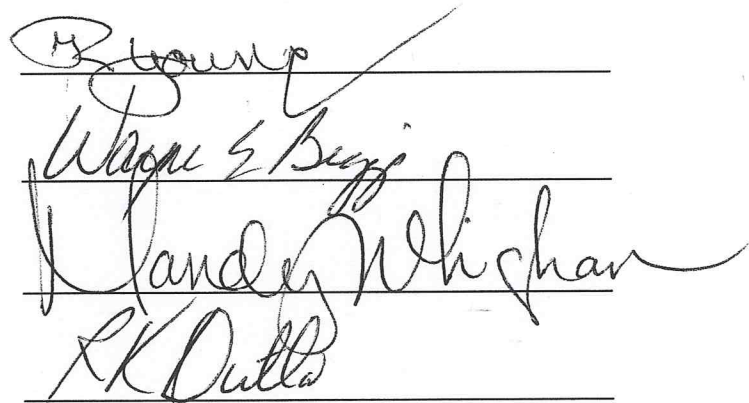 B Young
Wayne E
Mandy Whigham
RK Dutta